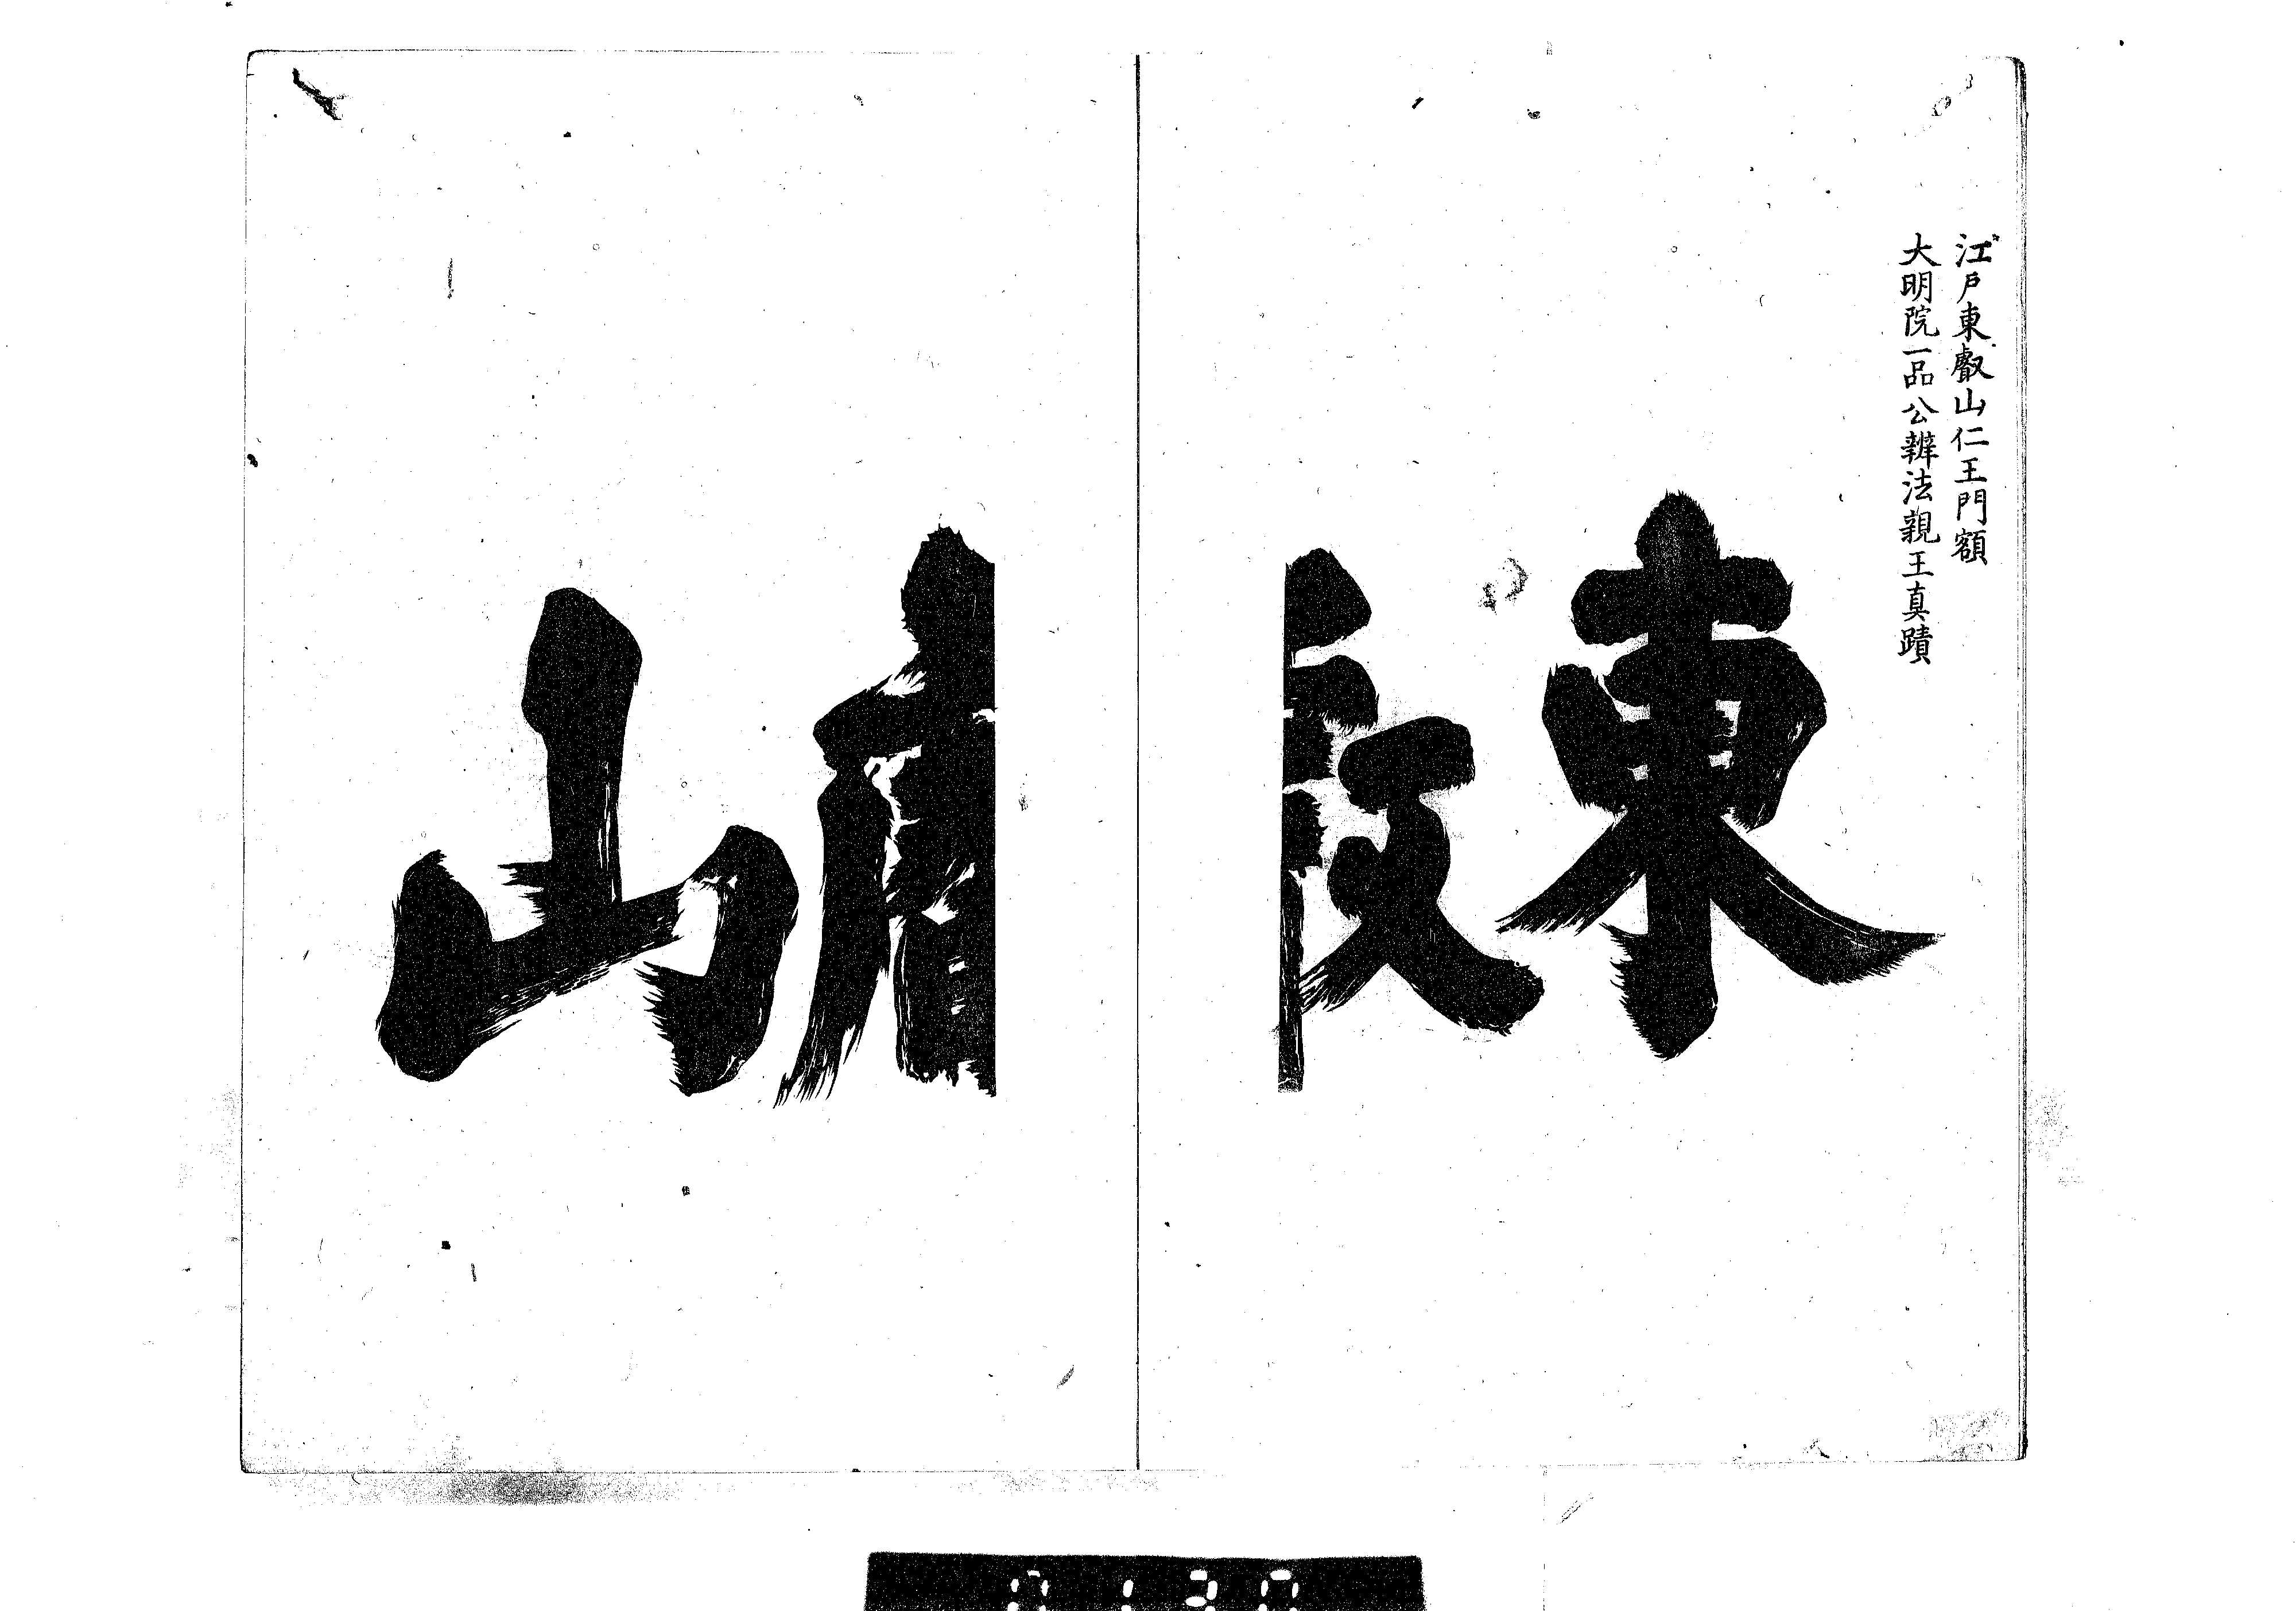 江戸東叡山仁王門額
大明院一品公辨法親王真蹟
東叡山